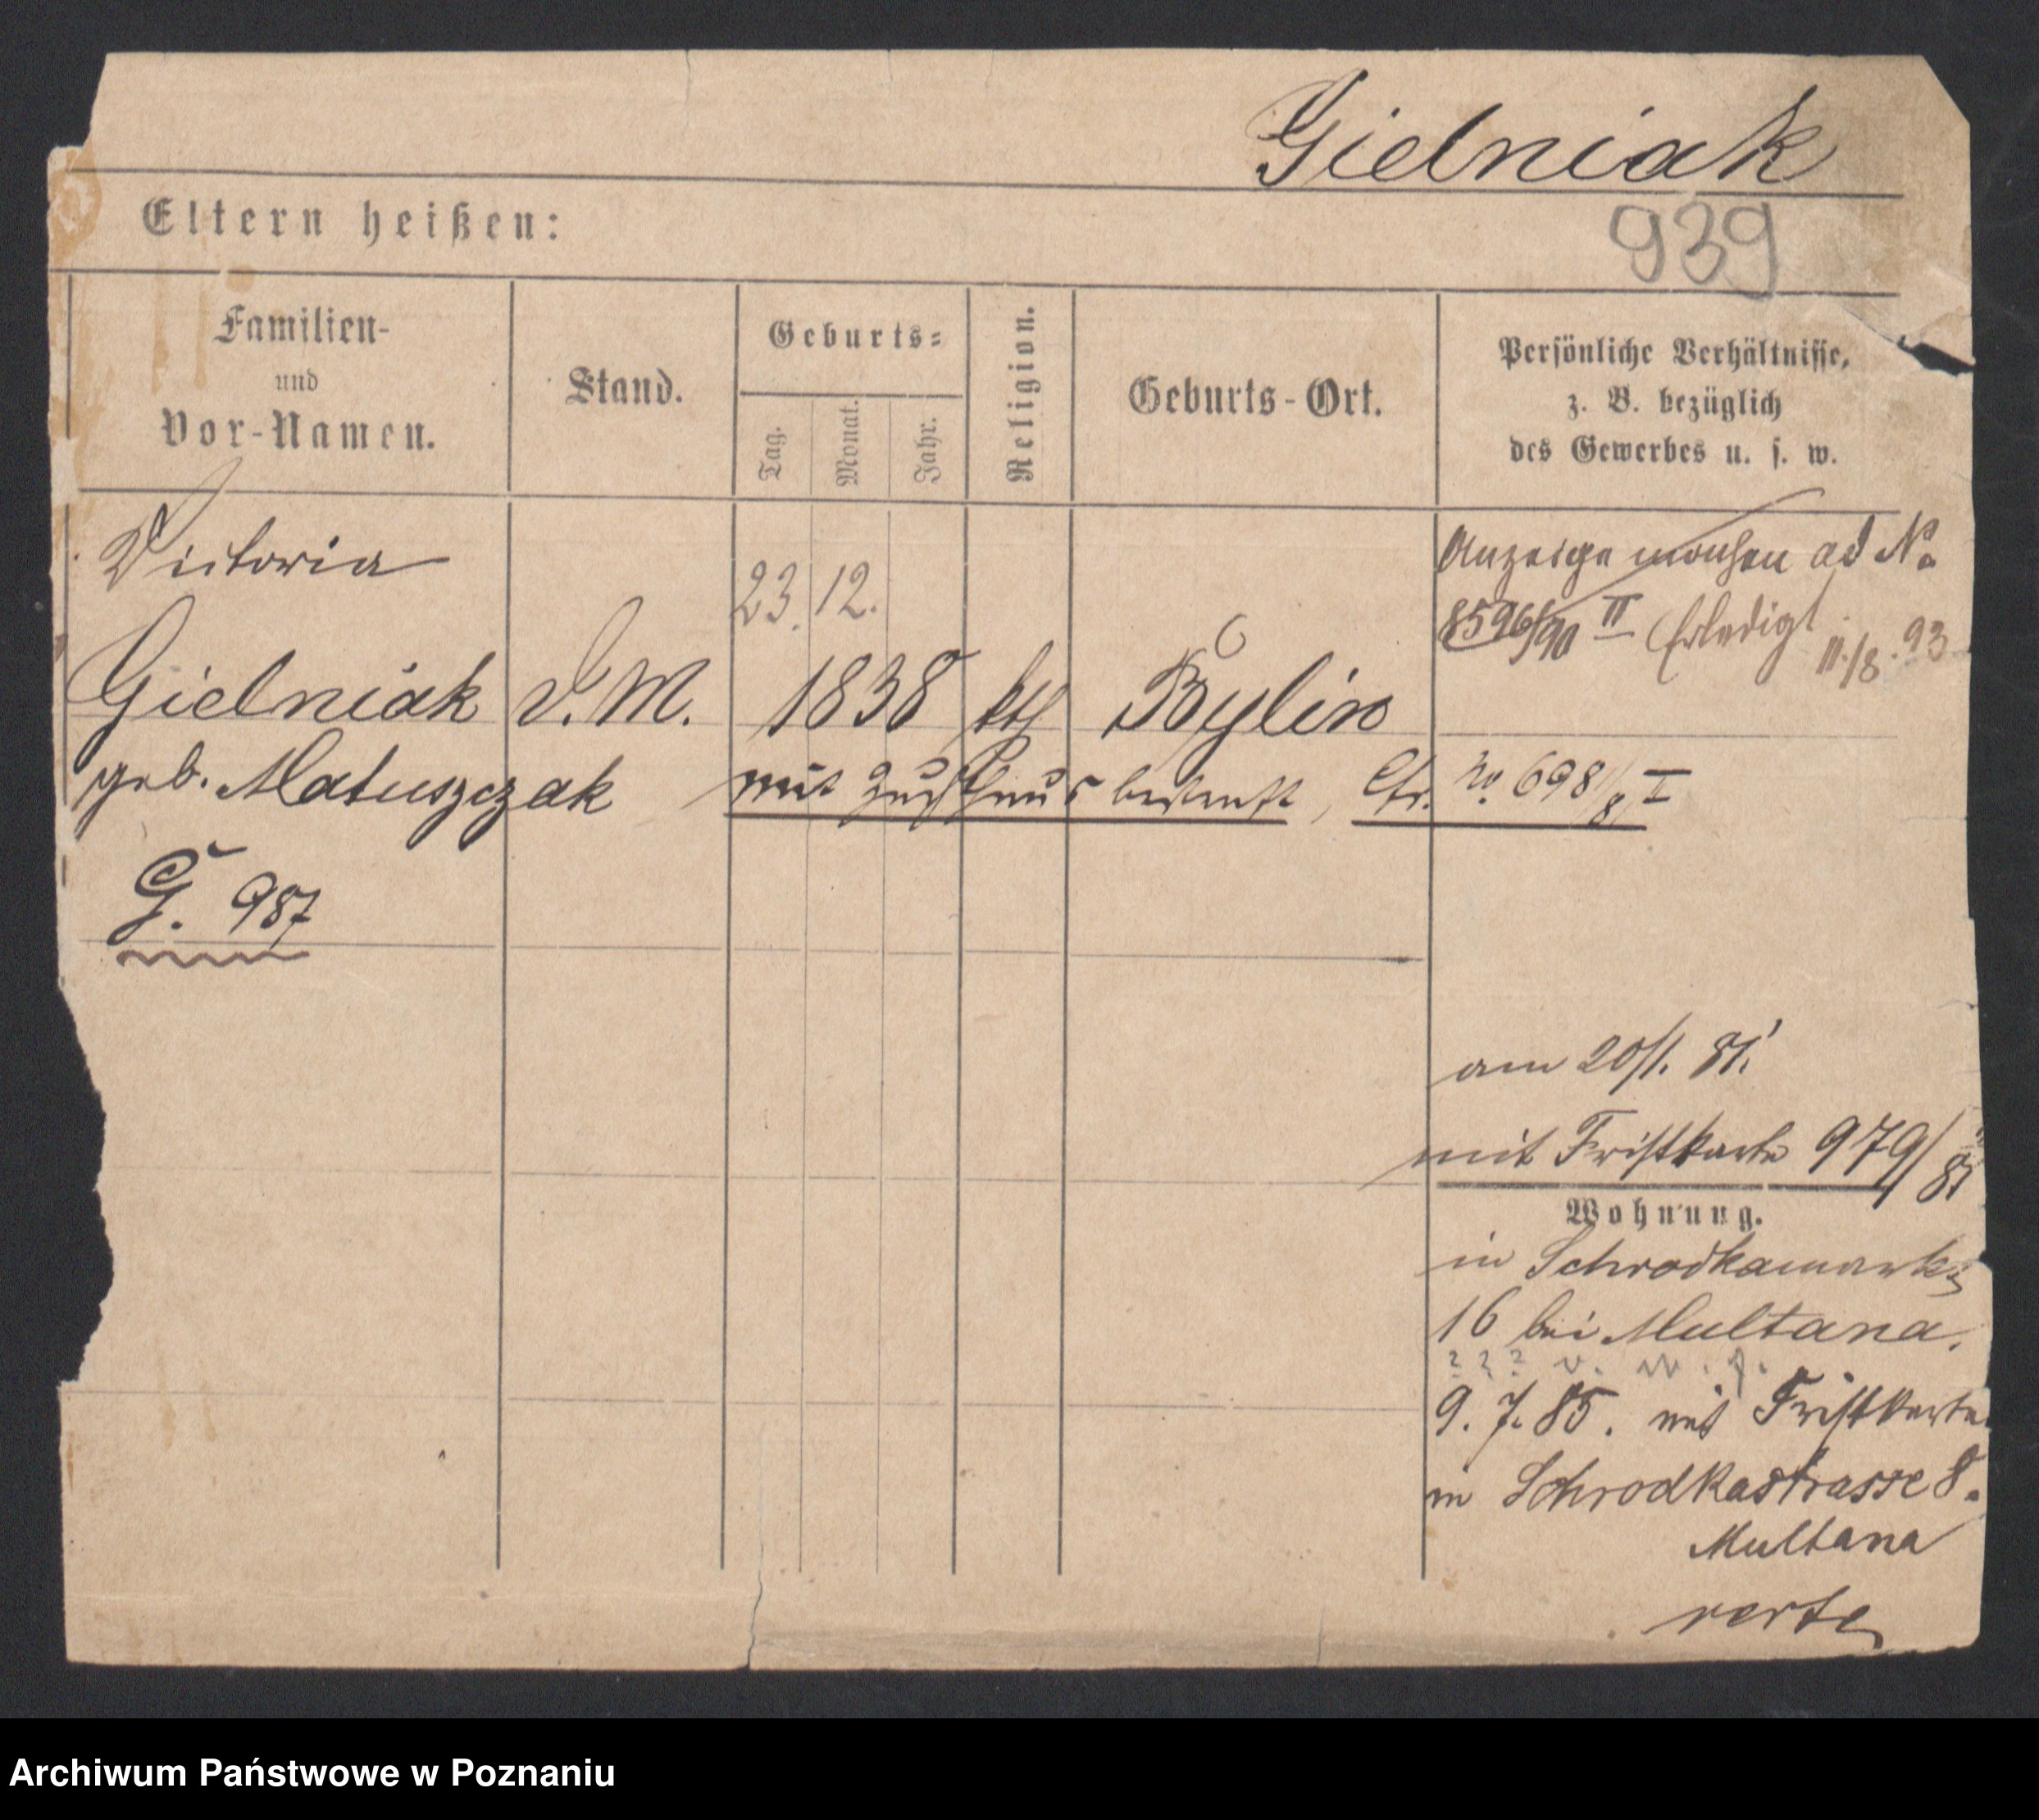 Gielniak
939
Eltern heißen:
Familien-
und
Vor-Namen.
Stand.
Geburts-
Tag.
Monat.
Jahr.
Religion.
Geburts-Ort.
Persönliche Verhältnisse,
z. B. bezüglich
des Gewerbes u. s. w.
Victoria
23. 12.
Anzeige machen ad No
8596/90 II Erledigt 11./8. 93
Gielniak
1838 kth Bylin
geb. Matuszczak
mit Zuchthaus bestraft, Cfr. No. 698/8, I
G. 987
am 20/1. 81.
mit Fristkarte 979/81
Wohnung.
in Schrodkamarkt
16 bei Multana.
9. 7. 85. mit Fristkarte
in Schrodkastrasse 8.
Multana
verte
Archiwum Państwowe w Poznaniu